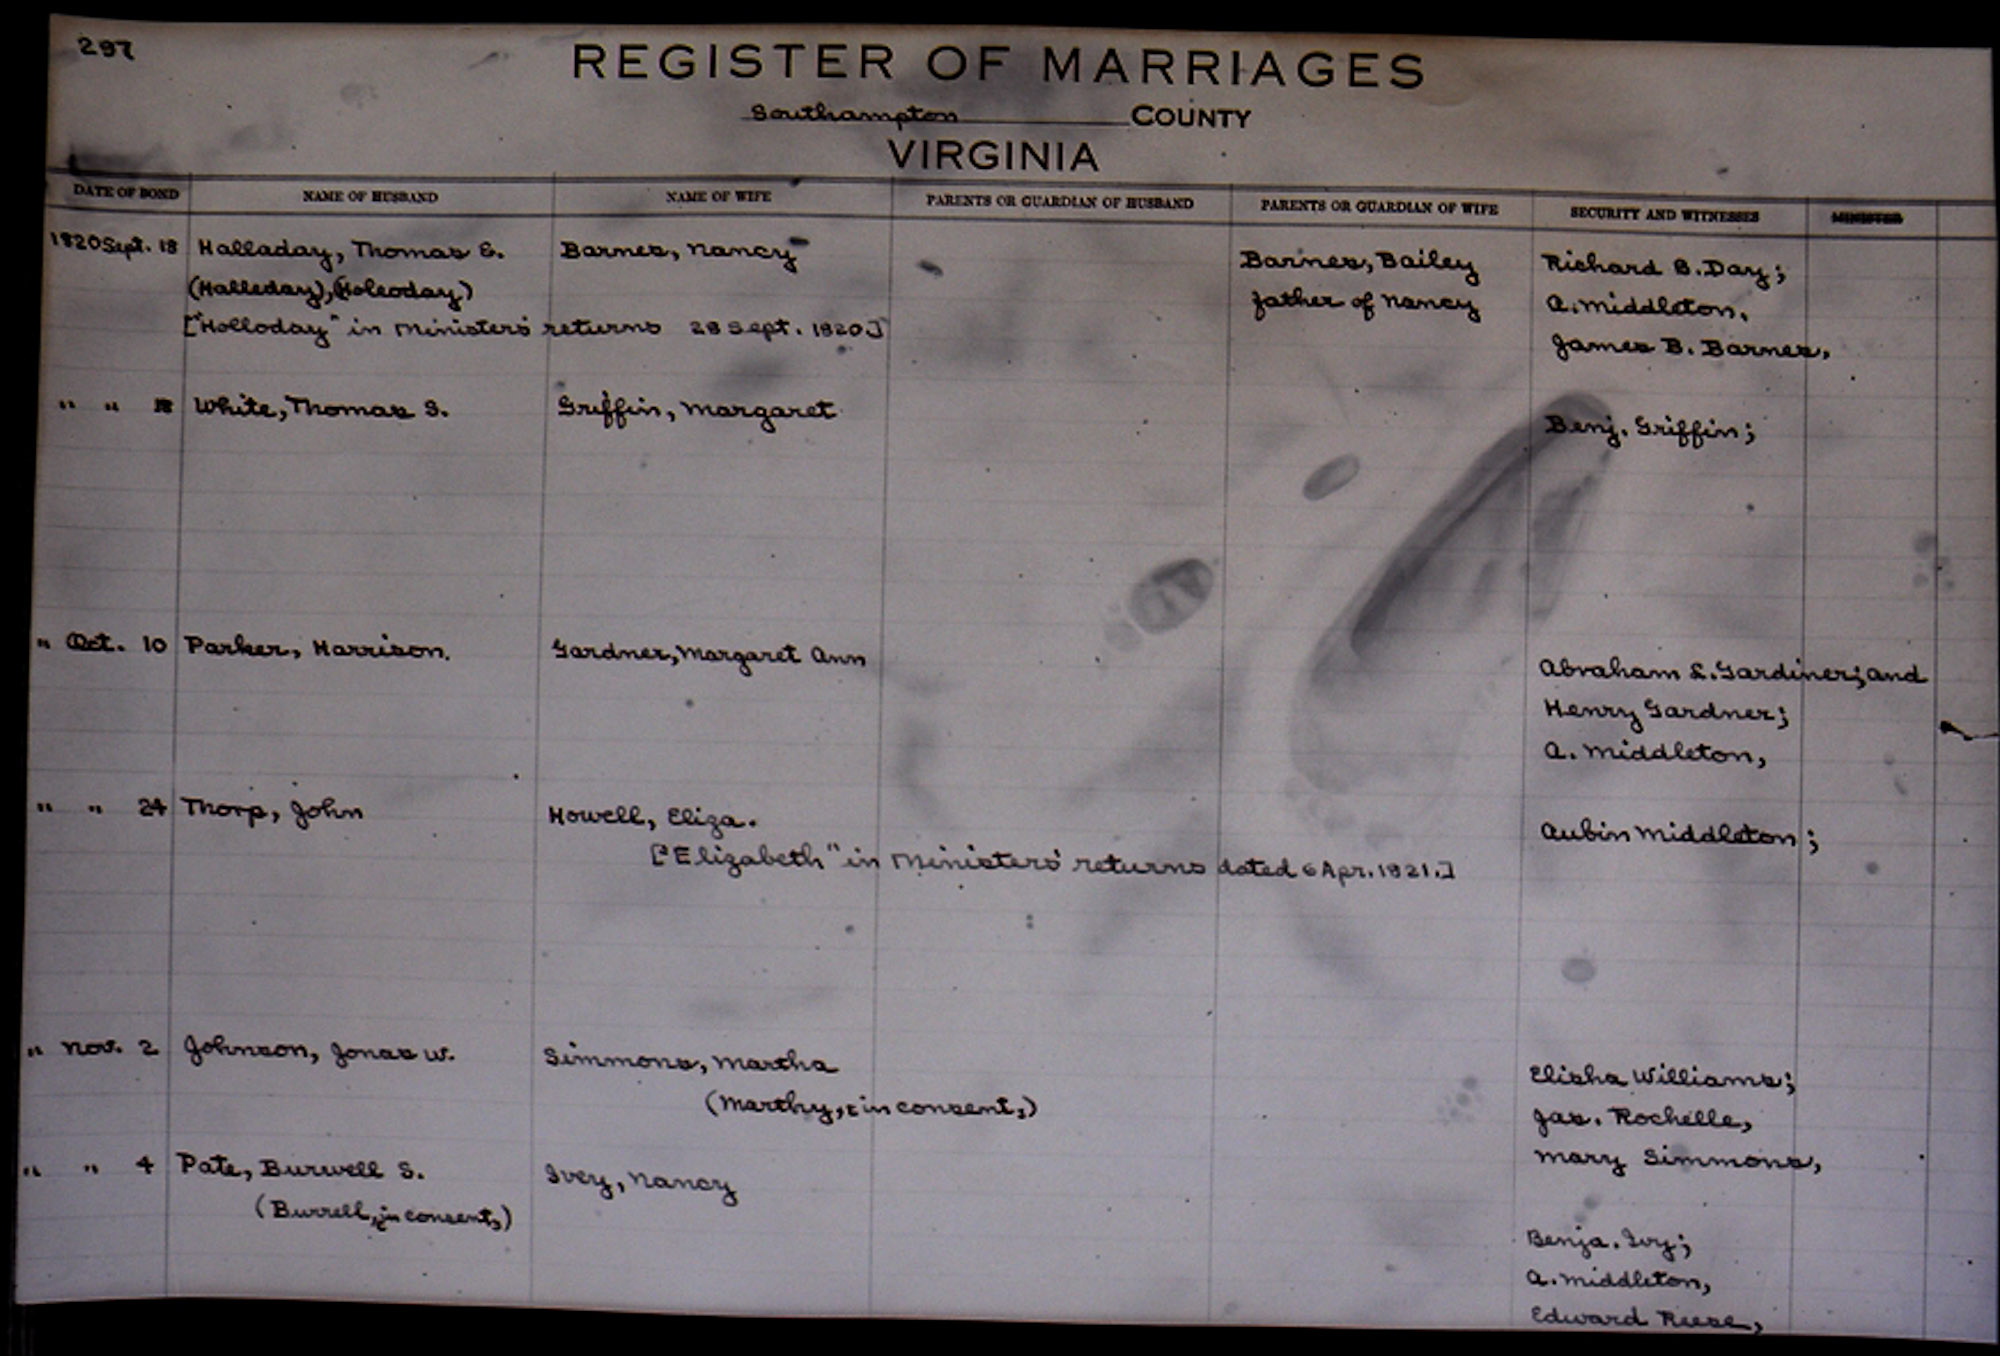 297
REGISTER OF MARRIAGES
Southampton COUNTY
VIRGINIA
DATE OF BOND NAME OF HUSBAND NAME OF WIFE PARENTS OR GUARDIAN OF HUSBAND PARENTS OR GUARDIAN OF WIFE SECURITY AND WITNESSES MINISTER
1820 Sept. 18 Halladay, Thomas E. Barnes, Nancy Barnes, Bailey Richard B. Day;
(Halleday), (Holeoday) father of Nancy A. Middleton,
["Holloday" in Ministers' returns 28 Sept. 1820] James B. Barnes,
" " 18 White, Thomas S. Griffin, Margaret Benj. Griffin;
" Oct. 10 Parker, Harrison. Gardner, Margaret Ann Abraham L. Gardiner; and
Henry Gardner;
A. Middleton,
" " 24 Thorp, John Howell, Eliza. Aubin Middleton;
["Elizabeth" in Ministers' returns dated 6 Apr. 1821.]
" Nov. 2 Johnson, Jonas W. Simmons, Martha Elisha Williams;
(Marthy, in consent,) Jas. Rochelle,
Mary Simmons,
" " 4 Pate, Burwell S. Ivey, Nancy
(Burrell, in consent,) Benja. Ivy;
A. Middleton,
Edward Reese,